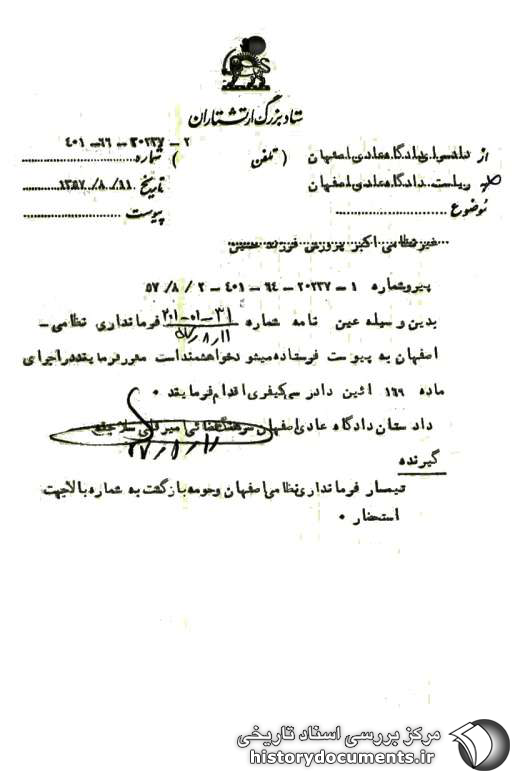 ستاد بزرگ ارتشتاران
۲ – ۲۰۲۳۷ – ۶۶ – ۴۰۱
از دادسرای دادگاه عادی اصفهان ( تلفن ) شماره
به ریاست دادگاه عادی اصفهان تاریخ ۱۳۵۷/۸/۱۱
موضوع پیوست
غیرنظامی اکبر پرورش فرزند حسین
پیرو شماره ۱ – ۲۰۲۳۷ – ۶۴ – ۴۰۱ – ۲ / ۸ / ۵۷
بدین وسیله عین نامه شماره ۳۱–۰۱–۲۰۱ فرمانداری نظامی –
۵۷/۸/۱۱
اصفهان به پیوست فرستاده میشود خواهشمند است مقرر فرمایند در اجرای
ماده ۱۶۹ ائین دادرسی کیفری اقدام فرمایند ۰
دادستان دادگاه عادی اصفهان سرهنگ قضائی میرقلی
۵۷/۸/۱۱
گیرنده
تیمسار فرمانداری نظامی اصفهان وحومه بازگشت به شماره بالا جهت
استحضار ۰
مرکز بررسی اسناد تاریخی
historydocuments.ir